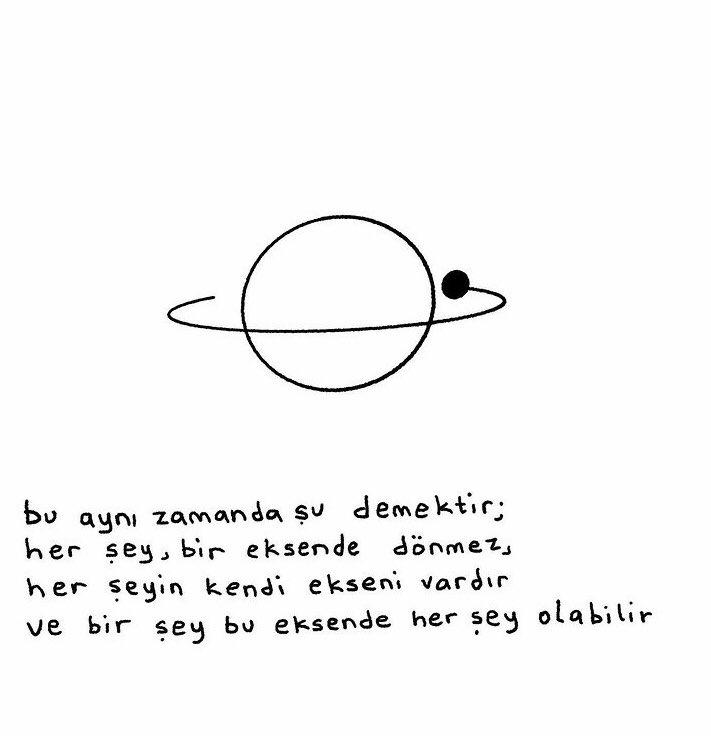 bu aynı zamanda şu demektir;
her şey, bir eksende dönmez,
her şeyin kendi ekseni vardır
ve bir şey bu eksende her şey olabilir